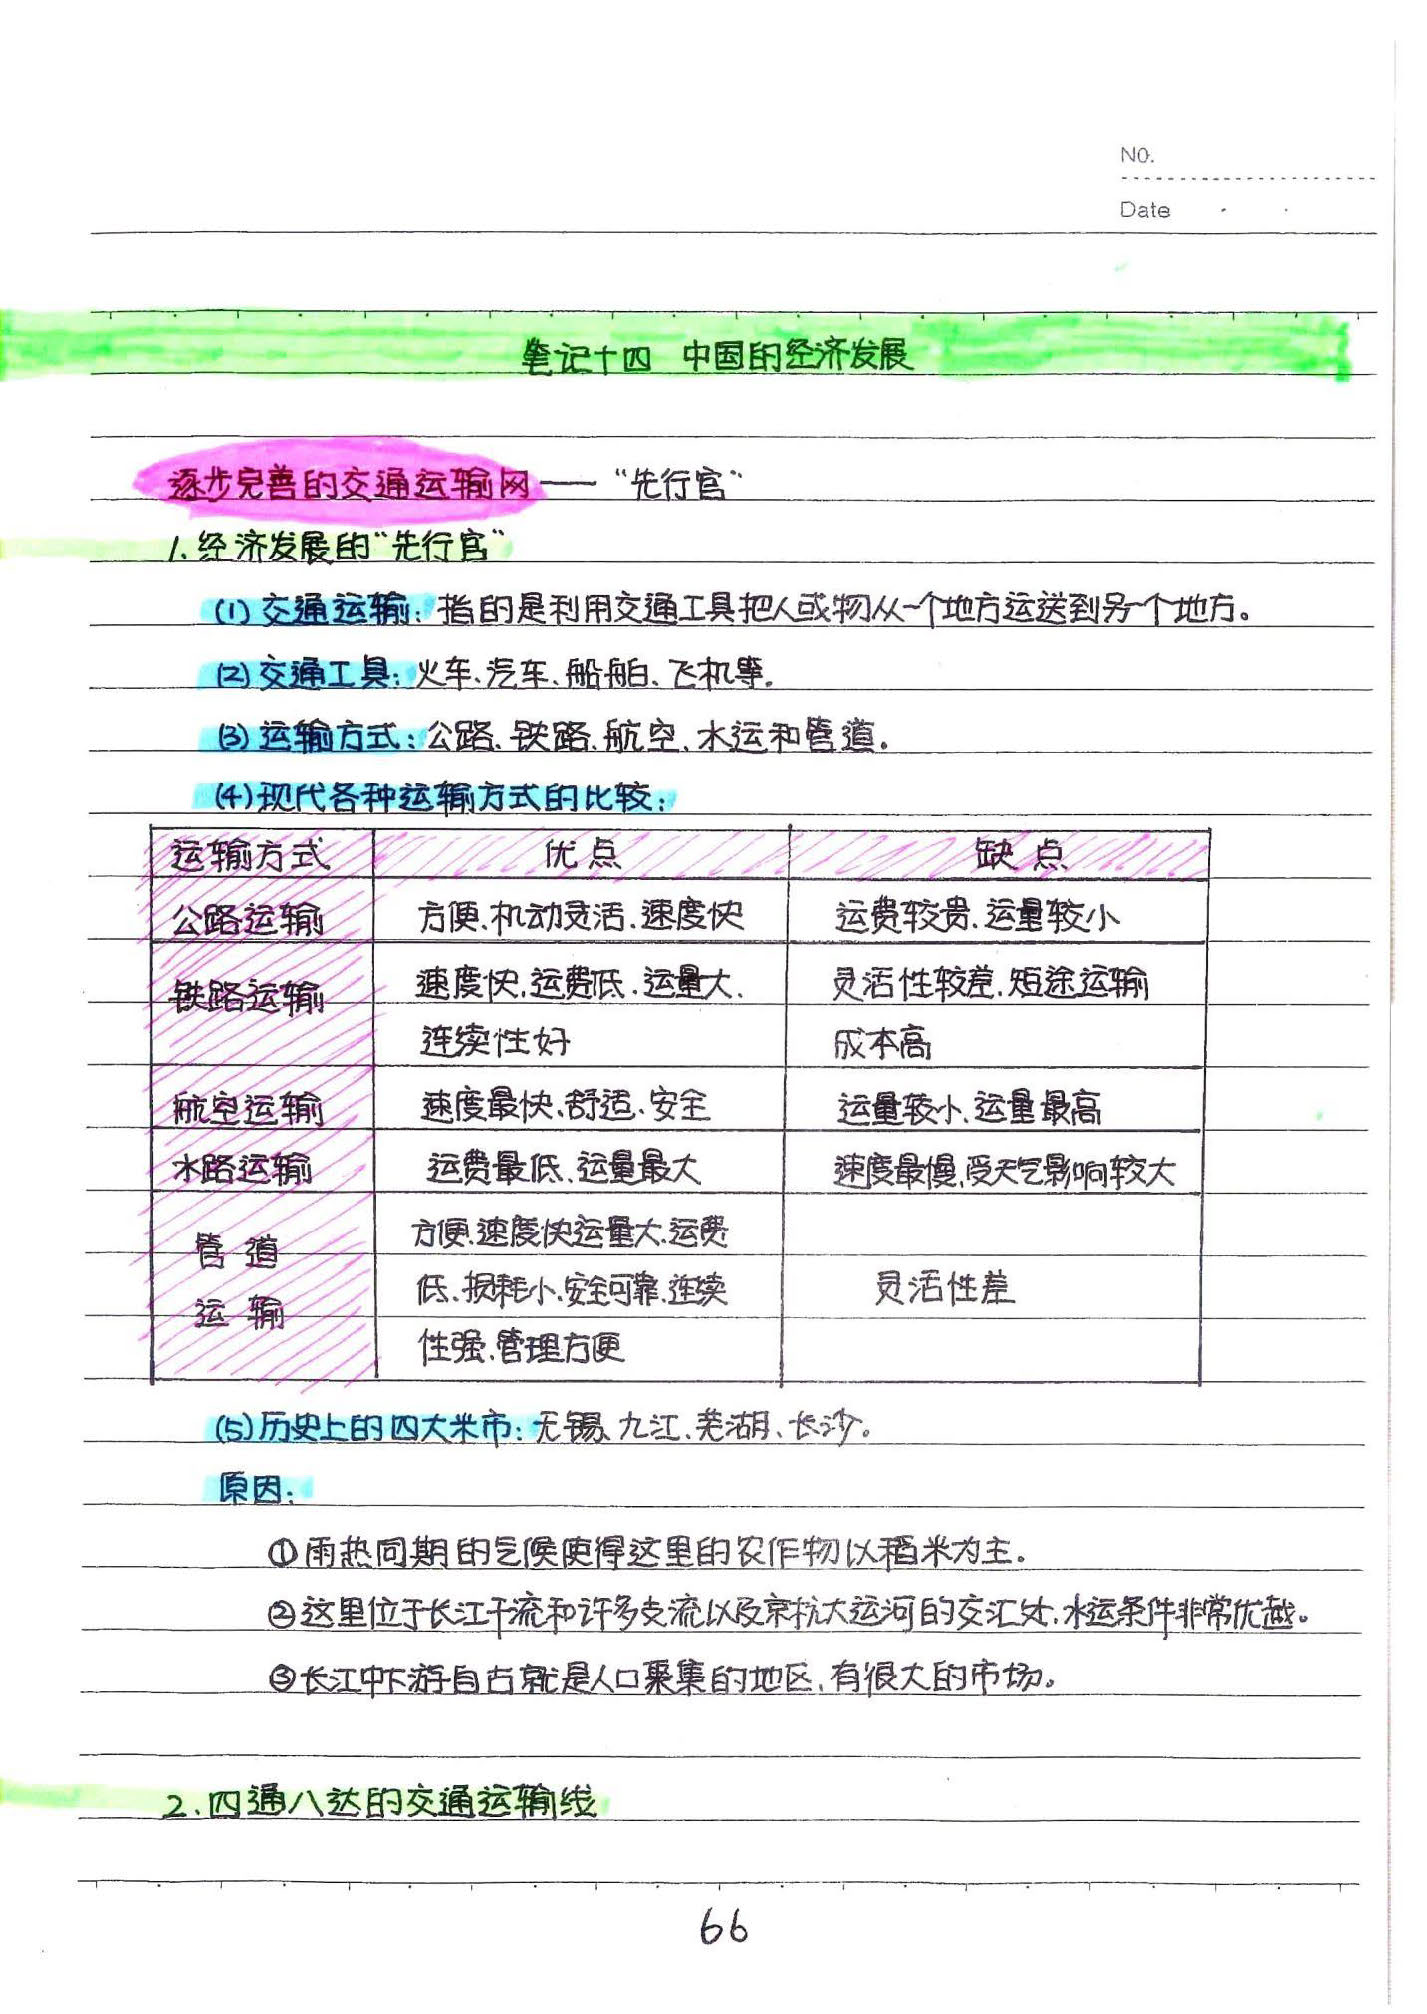 NO.
Date
笔记十四 中国的经济发展
逐步完善的交通运输网——“先行官”
1、经济发展的“先行官”
(1)交通运输:指的是利用交通工具把人或物从一个地方运送到另一个地方。
(2)交通工具:火车、汽车、船舶、飞机等.
(3)运输方式:公路、铁路、航空、水运和管道.
(4)现代各种运输方式的比较:
运输方式 优点 缺点
公路运输 方便、机动灵活、速度快 运费较贵、运量较小
铁路运输 速度快、运费低、运量大、 灵活性较差、短途运输
连续性好 成本高
航空运输 速度最快、舒适、安全 运量较小、运量最高
水路运输 运费最低、运量最大 速度最慢、受天气影响较大
管道 方便、速度快运量大、运费
低、损耗小、安全可靠、连续 灵活性差
运输
性强、管理方便
(5)历史上的四大米市:无锡、九江、芜湖、长沙。
原因:
①雨热同期的气候使得这里的农作物以稻米为主.
②这里位于长江干流和许多支流以及京杭大运河的交汇处、水运条件非常优越。
③长江中下游自古就是人口聚集的地区、有很大的市场。
2、四通八达的交通运输线
66